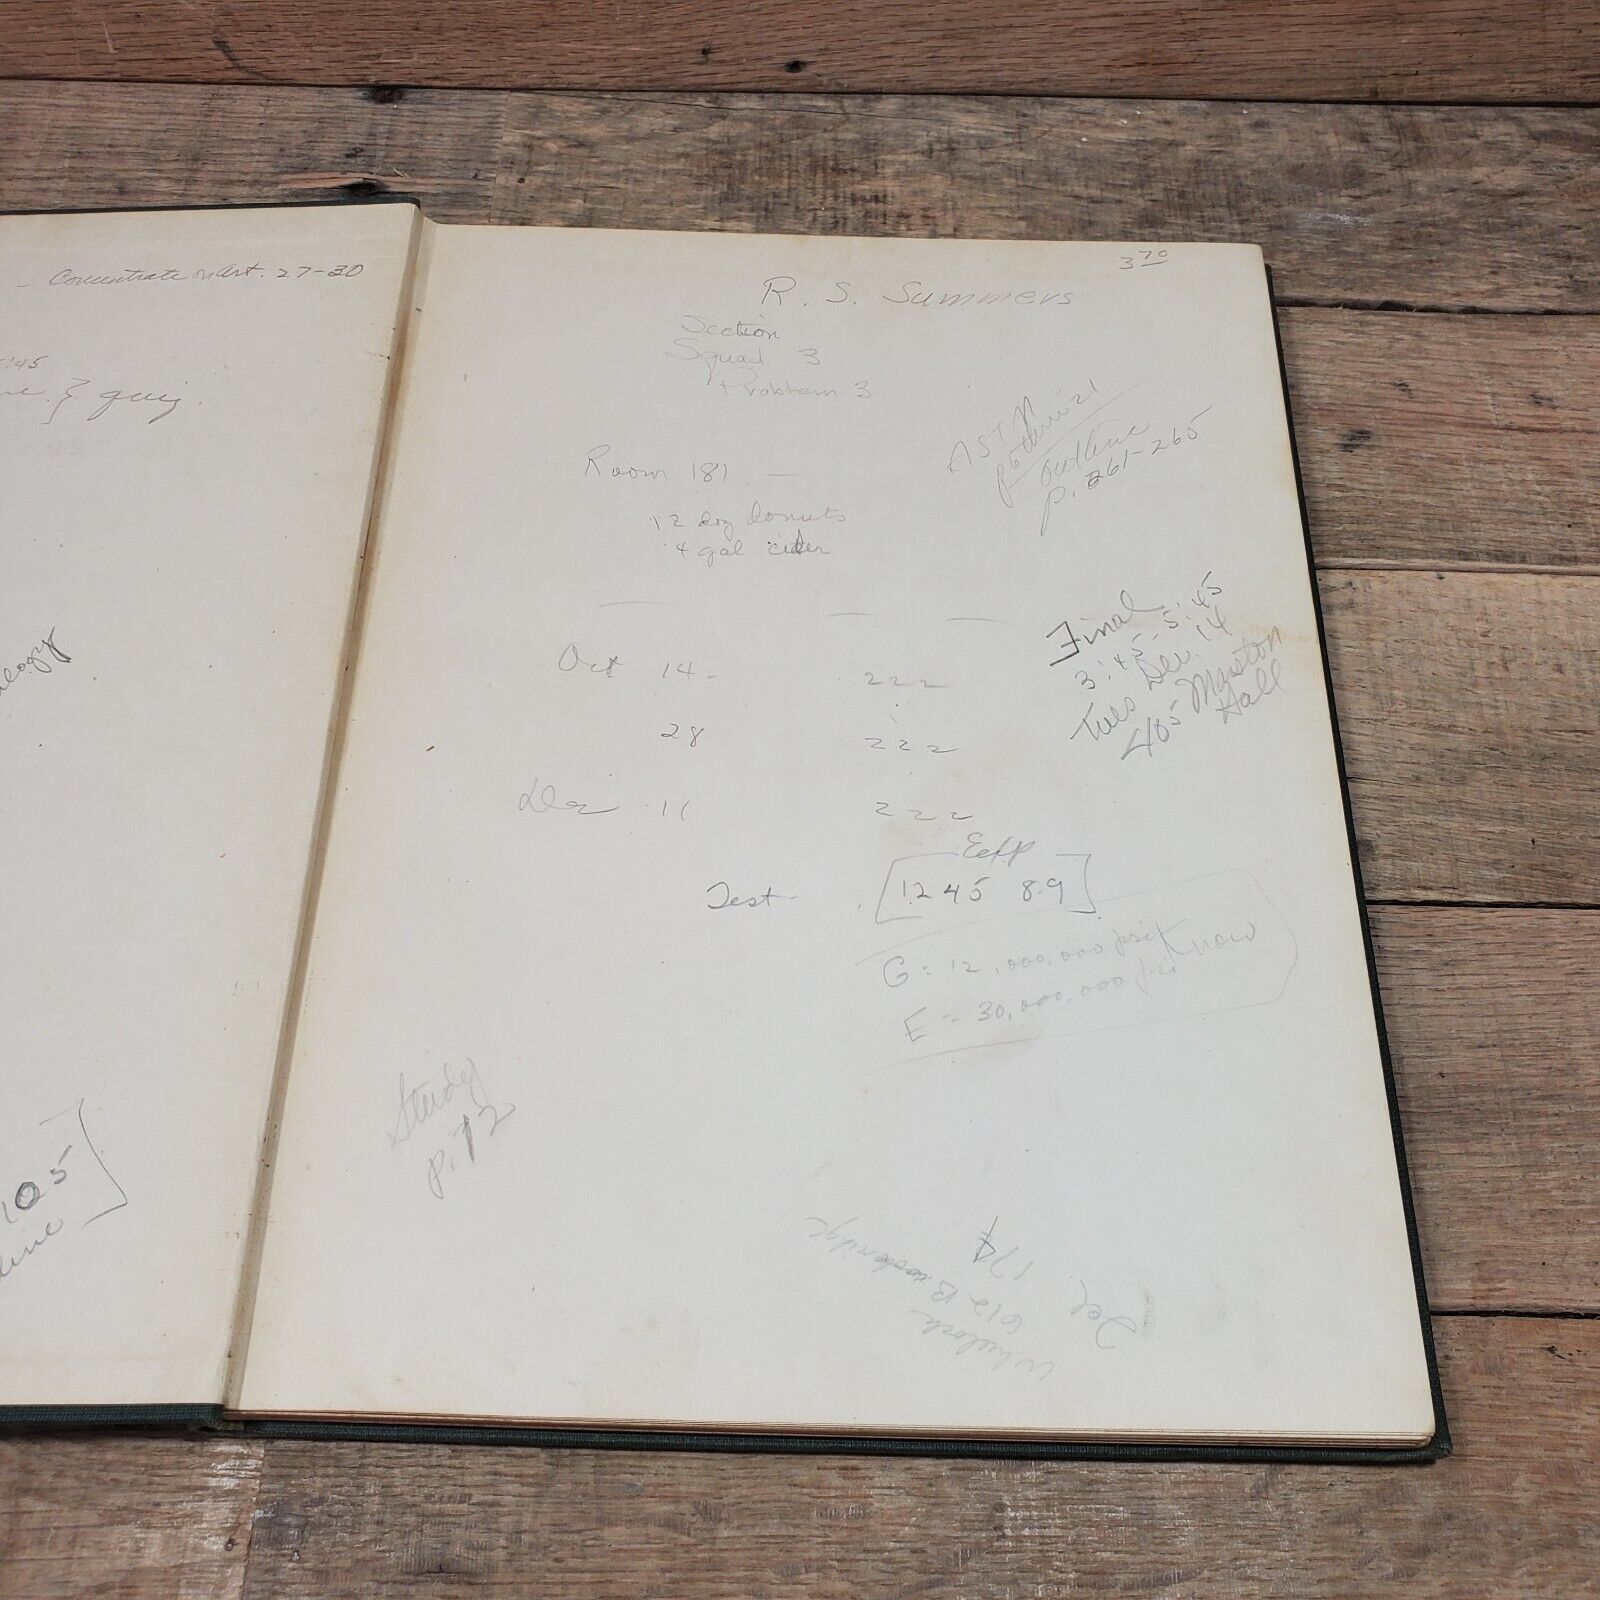 Concentrate on Art. 27-30
:45
} quiz.
105
3 70
R. S. Summers
Section
Squad 3
Problem 3
ASTM
outline
p. 261-265
Room 181 —
12 doz donuts
4 gal cider
Final
3:45-5:45
Tues Dec. 14
405 Marston
Hall
Oct 14 - 222
28 222
Dec 11 222
Eeff
Test - [12 45 8.9]
G = 12,000,000 psi Know
E = 30,000,000 psi
Study
p. 72
Def.
17¢
612 Brookridge
Whelock